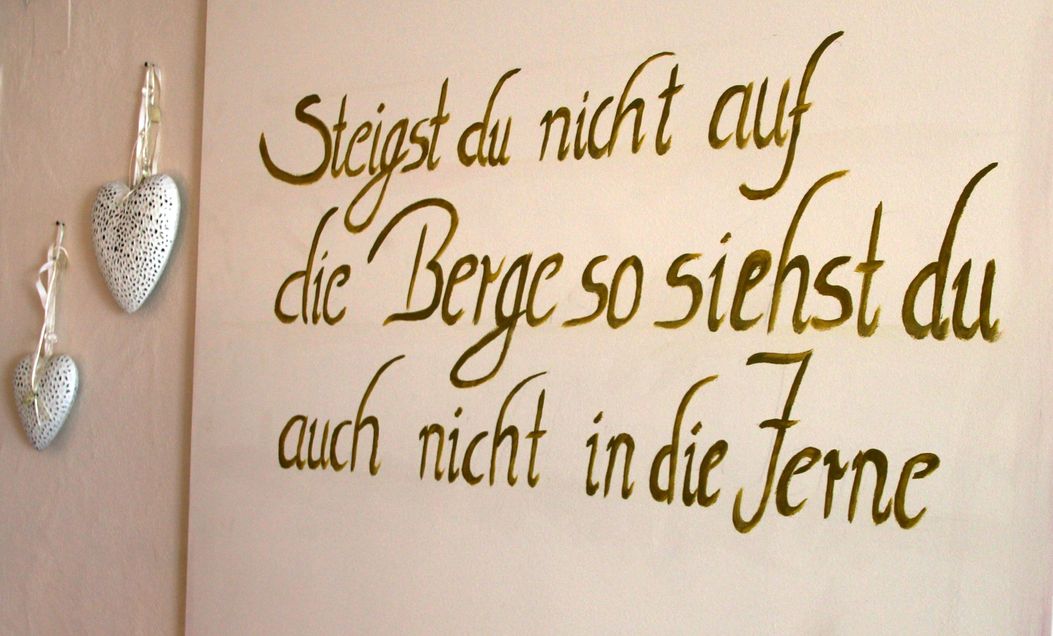 Steigst du nicht auf
die Berge so siehst du
auch nicht in die Ferne